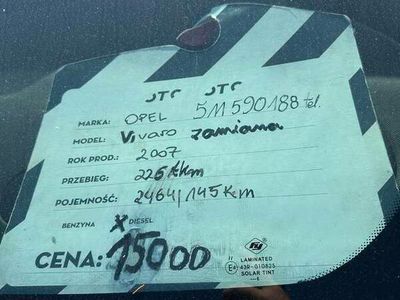 JTC JTC
MARKA: OPEL 511590188 tel.
MODEL: Vivaro zamiana
ROK PROD.: 2007
PRZEBIEG: 225tkm
POJEMNOŚĆ: 2464/145km
BENZYNA X DIESEL
CENA: 15000
LAMINATED
E4 43R-010825
SOLAR TINT